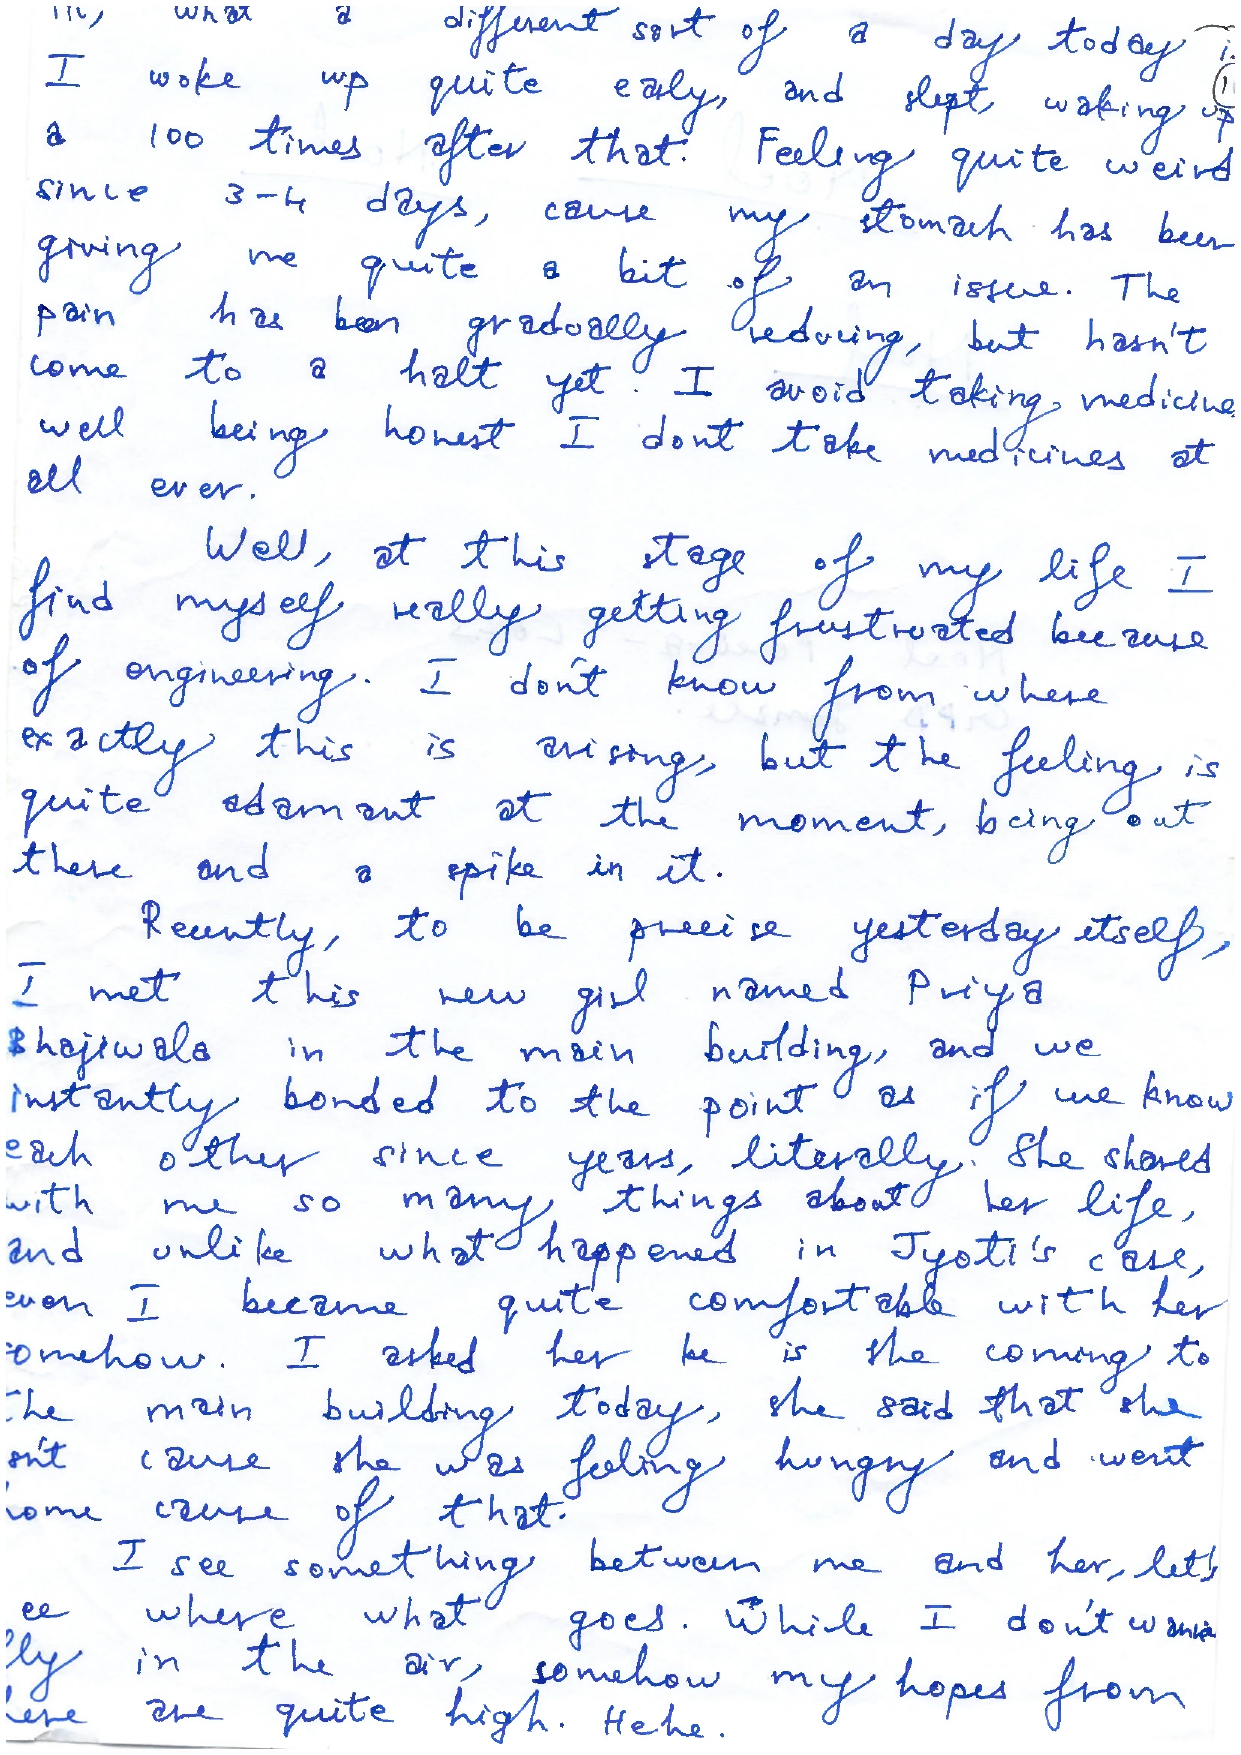 what a different sort of a day today
I woke up quite early, and slept, waking up
a 100 times after that. Feeling quite weird
since 3-4 days, cause my stomach has been
giving me quite a bit of an issue. The
pain has been gradually reducing, but hasn't
come to a halt yet. I avoid taking medicine
well being honest I dont take medicines at
all ever.
Well, at this stage of my life I
find myself really getting frustrated because
of engineering. I don't know from where
exactly this is arising, but the feeling is
quite adamant at the moment, being out
there and a spike in it.
Recently, to be precise yesterday itself,
I met this new girl named Priya
Bhajiwala in the main building, and we
instantly bonded to the point as if we know
each other since years, literally. She shared
with me so many things about her life,
and unlike what happened in Jyoti's case,
even I became quite comfortable with her
omehow. I asked her ke is she coming to
the main building today, she said that she
sn't cause she was feeling hungry and went
home cause of that.
I see something between me and her, let's
ee where what goes. While I don't wanna
ly in the air, somehow my hopes from
here are quite high. Hehe.